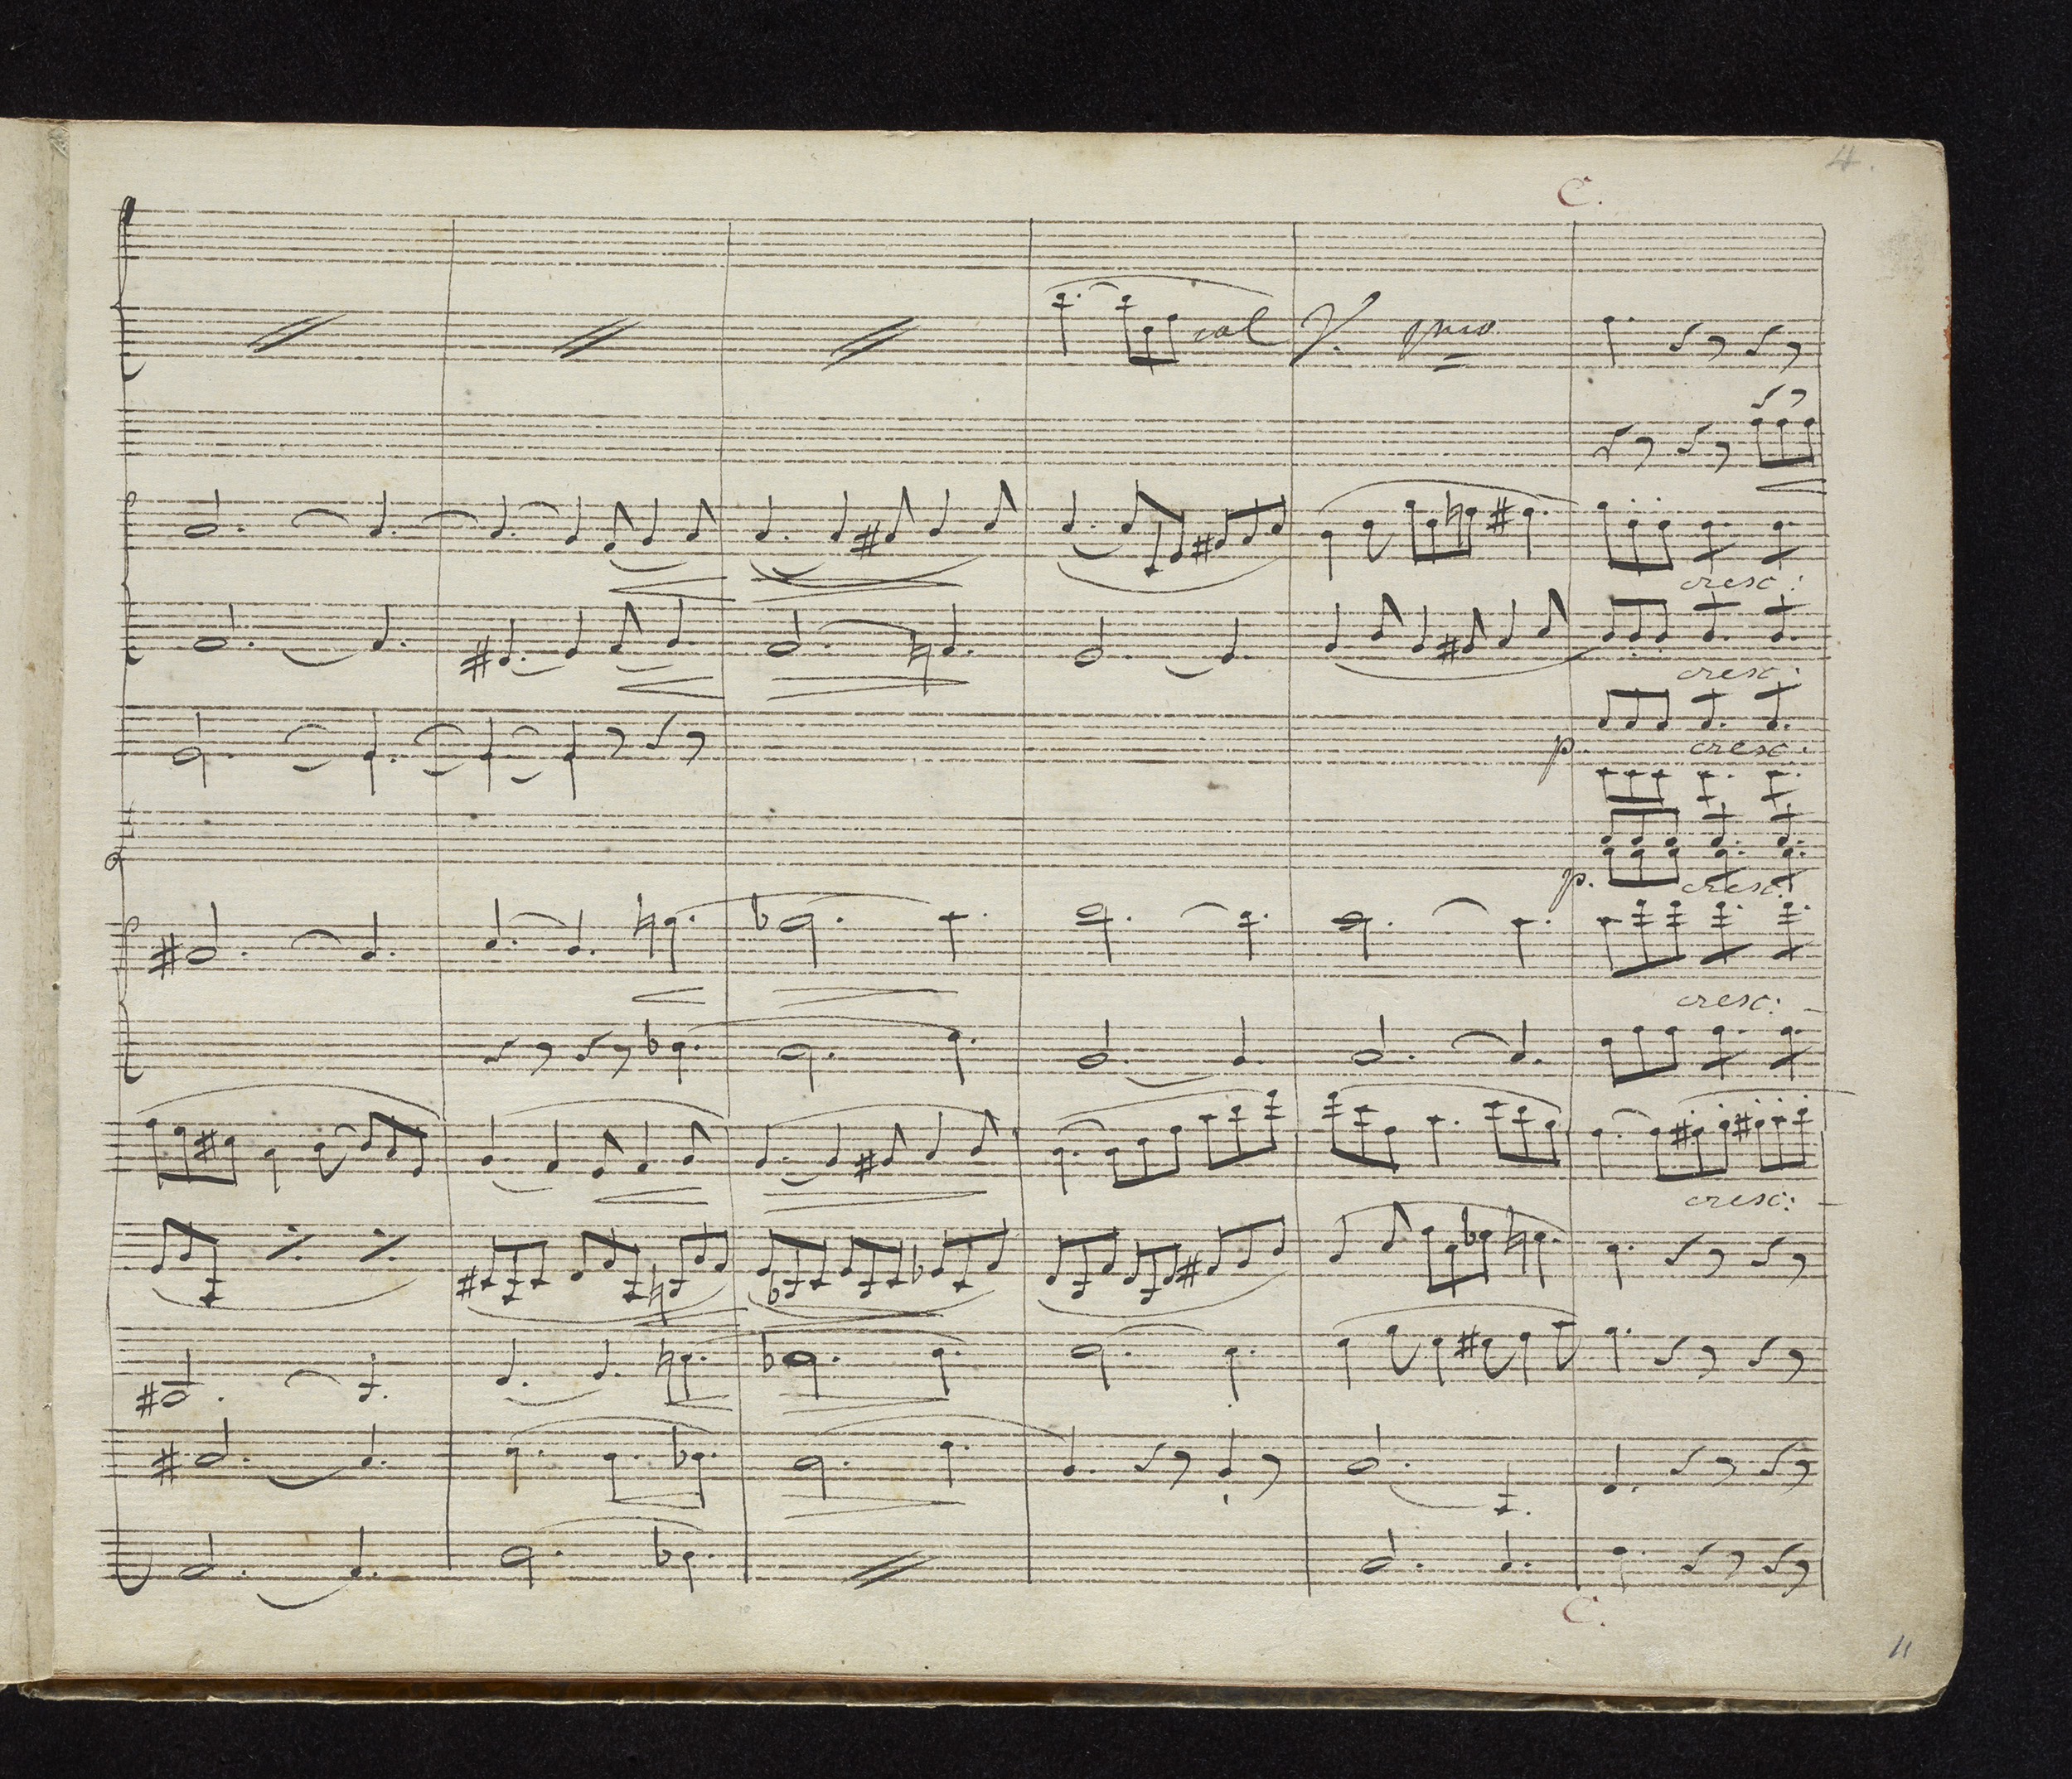 4.
C.
col V. pmo
cresc:
cresc:
p. cresc:
p. cresc:
cresc:
cresc:
C.
11